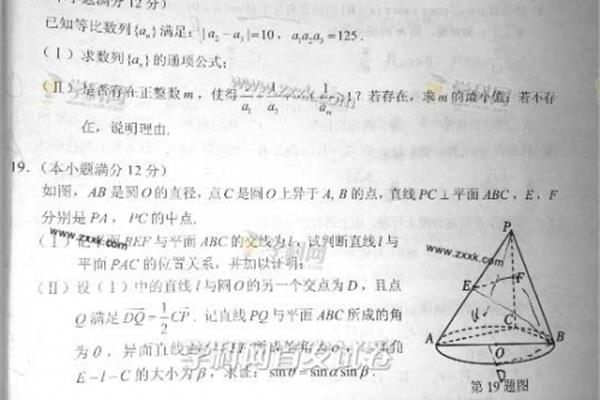 小题满分12分)
已知等比数列{aₙ}满足:|a₂-a₃|=10,a₁a₂a₃=125.
(Ⅰ)求数列{aₙ}的通项公式;
(Ⅱ)是否存在正整数m,使得1/a₁+1/a₂+⋯+1/aₘ≥1?若存在,求m的最小值;若不存
在,说明理由.
19.(本小题满分12分)
如图,AB是圆O的直径,点C是圆O上异于A,B的点,直线PC⊥平面ABC,E,F
分别是PA,PC的中点.
(Ⅰ)记平面BEF与平面ABC的交线为l,试判断直线l与
平面PAC的位置关系,并加以证明;
(Ⅱ)设(Ⅰ)中的直线l与圆O的另一个交点为D,且点
Q满足DQ=1/2CP.记直线PQ与平面ABC所成的角
为θ,异面直线 角
E-l-C的大小为β,求证:sinθ=sinαsinβ.
P
E
F
C
A
B
O
D
第19题图
www.zxxk.com
www.zxxk.com
www.zxxk.com
学科网
学科网
学科网
学科网首发试卷